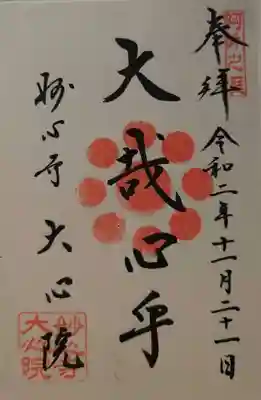 奉拝 令和二年十一月二十一日
大哉心乎
妙心寺 大心院
妙心寺
大心院